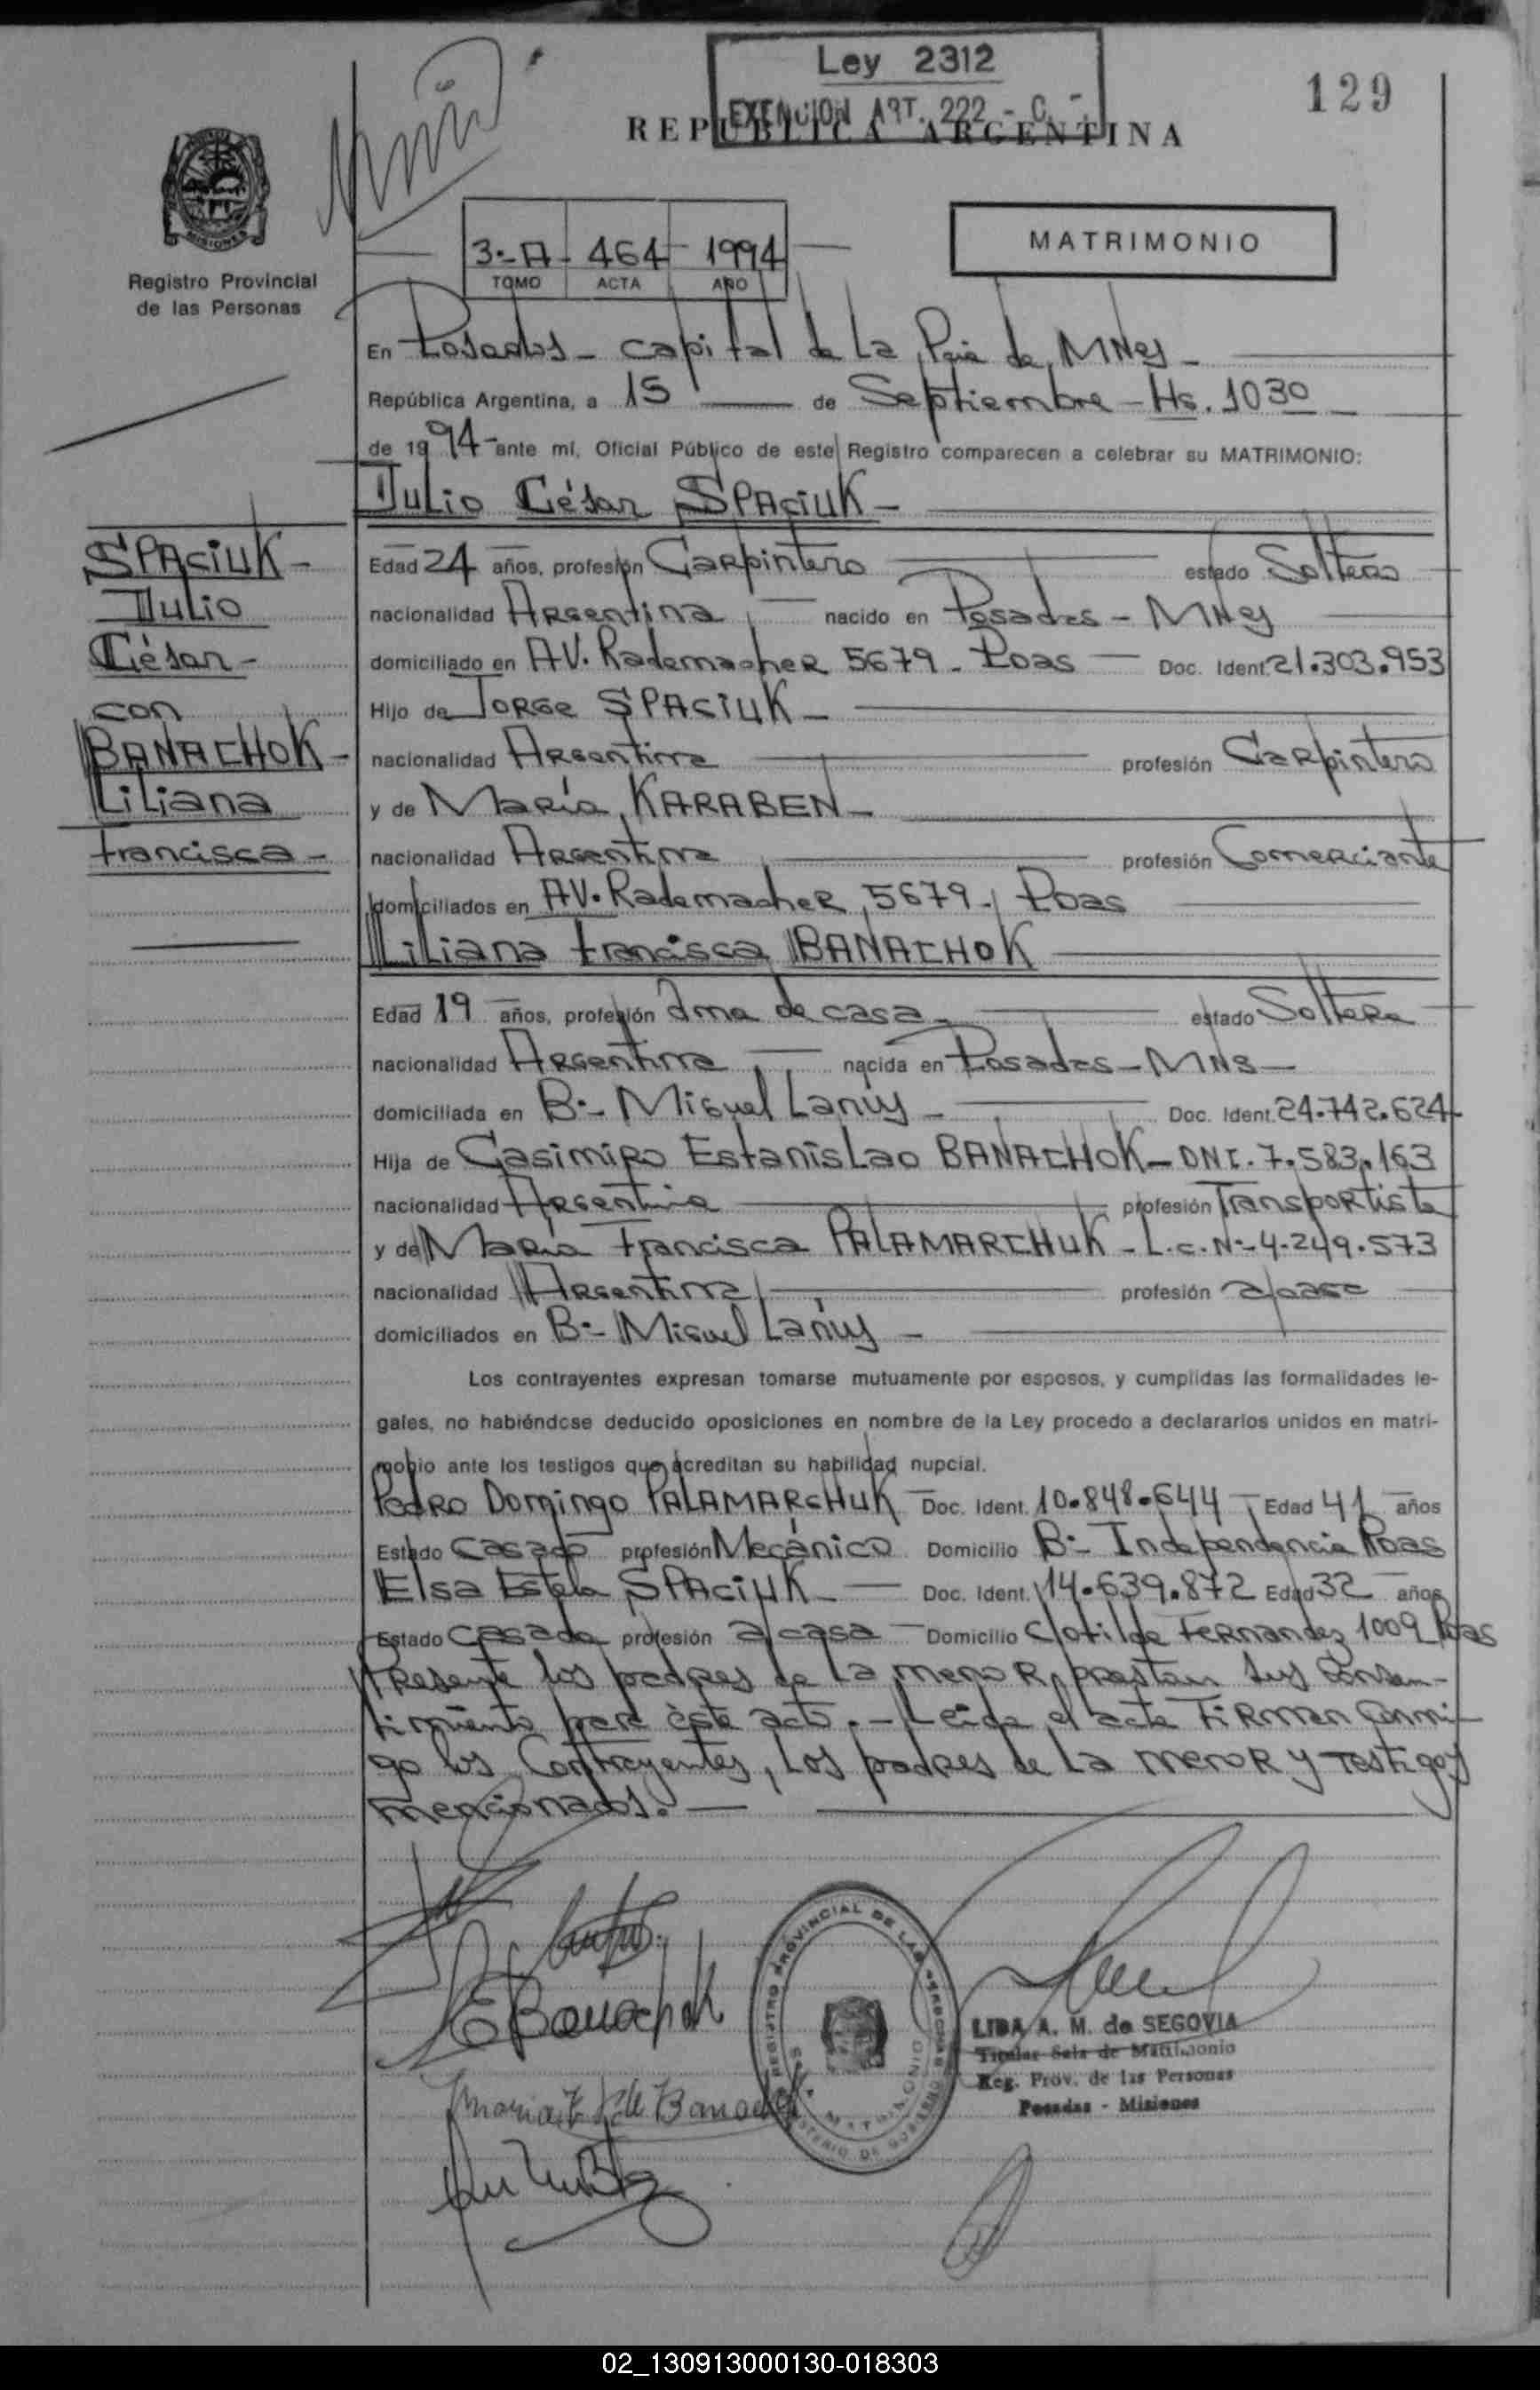 Ley 2312
EXENCION ART. 222 - C.
129
REPUBLICA ARGENTINA
MISIONES
Registro Provincial
de las Personas
3-A - 464 - 1994
TOMO ACTA AÑO
MATRIMONIO
En Posadas - capital de La Pcia de MNes -
República Argentina, a 15 de Septiembre - Hs. 1030
de 1994 - ante mí, Oficial Público de este Registro comparecen a celebrar su MATRIMONIO:
Julio César SPACIUK -
SPACIUK -
Julio
César -
con
BANACHOK -
Liliana
Francisca -
Edad 24 años, profesión Carpintero estado Soltero
nacionalidad Argentina nacido en Posadas - MNes
domiciliado en AV. Rademacher 5679 - Poas - Doc. Ident. 21.303.953
Hijo de Jorge SPACIUK -
nacionalidad Argentina profesión Carpintero
y de María KARABEN -
nacionalidad Argentina profesión Comerciante
domiciliados en AV. Rademacher 5679 - Poas
Liliana Francisca BANACHOK
Edad 19 años, profesión Ama de casa - estado Soltera
nacionalidad Argentina nacida en Posadas - MNS -
domiciliada en B:- Miguel Lanús - Doc. Ident. 24.742.624
Hija de Casimiro Estanislao BANACHOK - DNI. 7.583.163
nacionalidad Argentina profesión Transportista
y de María Francisca PALAMARCHUK - L.c.N:- 4.249.573
nacionalidad Argentina profesión a/casa
domiciliados en B:- Miguel Lanús -
Los contrayentes expresan tomarse mutuamente por esposos, y cumplidas las formalidades le-
gales, no habiéndose deducido oposiciones en nombre de la Ley procedo a declararlos unidos en matri-
monio ante los testigos que acreditan su habilidad nupcial.
Pedro Domingo PALAMARCHUK Doc. Ident. 10.848.644 Edad 41 años
Estado Casado profesión Mecánico Domicilio B:- Independencia Poas
Elsa Estela SPACIUK - Doc. Ident. 14.639.872 Edad 32 años
Estado Casada profesión a/casa Domicilio Clotilde Fernandez 1009 Poas
Presente los padres de La menor, prestan sus consen-
timiento para éste acto. - Leida el acta Firman conmi-
go los Contrayentes, Los padres de La menor y Testigos
mencionados. -
EBanachok
Maria F P de Banachok
REGISTRO PROVINCIAL DE LAS PERSONAS
MINISTERIO DE GOBIERNO
MATRIMONIO
LIDA A. M. de SEGOVIA
Titular Sala de Matrimonio
Reg. Prov. de las Personas
Posadas - Misiones
02_130913000130-018303